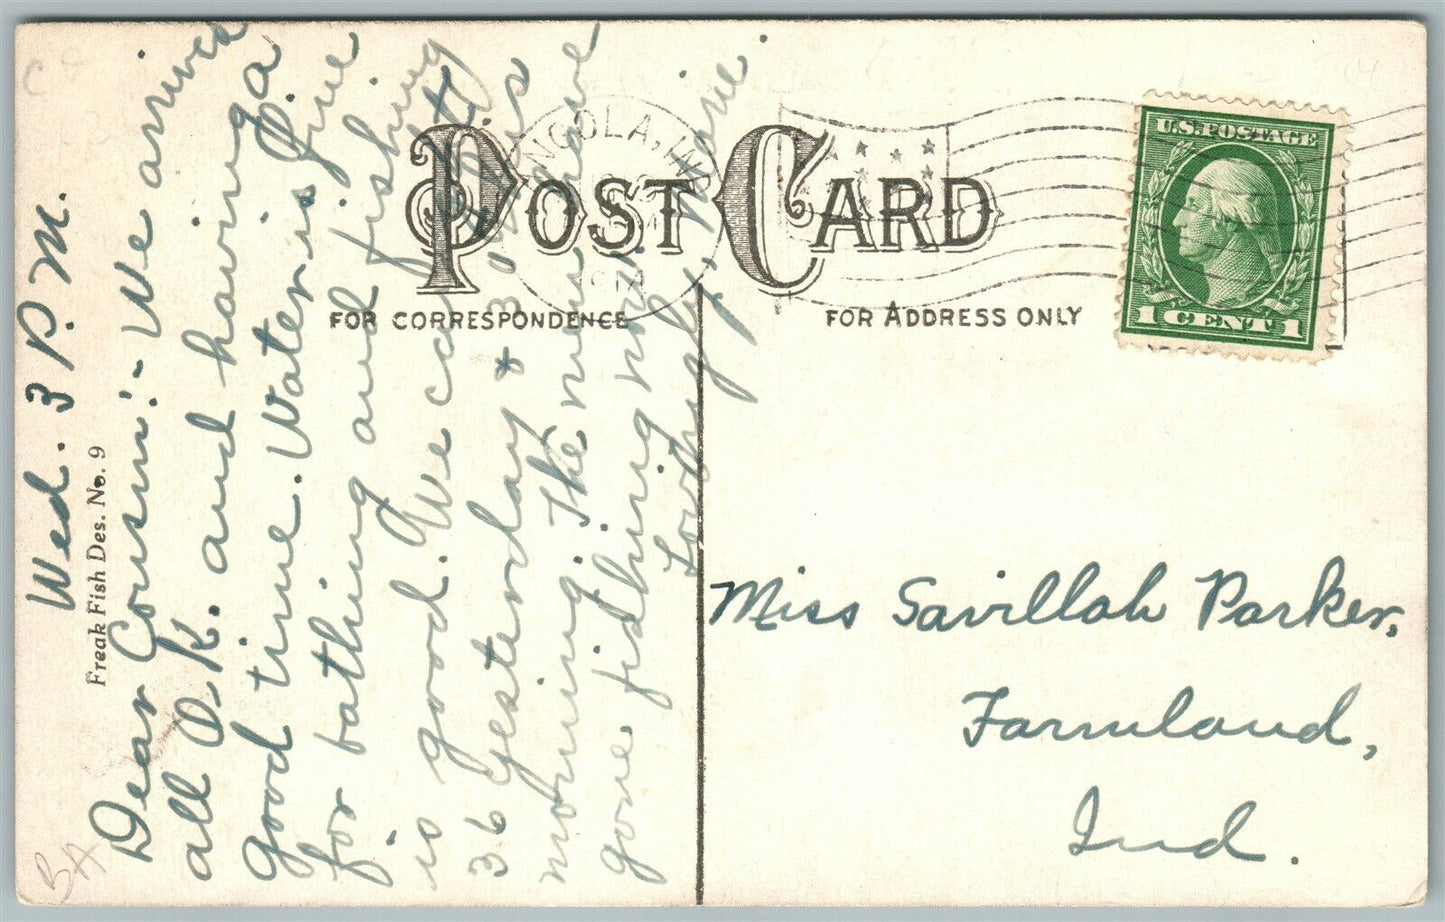 Wed. 3 P. M.
Freak Fish Des. No. 9
Dear Cousin:- We arrived
all O.K. and having a
good time. Water is fine
for bathing and fishing
is good. We caught
36 yesterday & 30 this
morning. The men have
gone fishing now
Lovingly, Marie.
POST CARD
FOR CORRESPONDENCE
FOR ADDRESS ONLY
ANGOLA, IND.
U.S. POSTAGE
1 CENT 1
Miss Savillah Parker,
Farmland,
Ind.